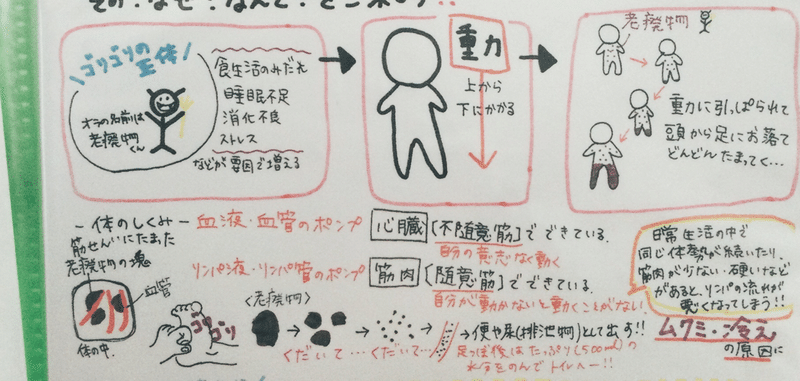 ゴリゴリの正体
オラの名前は
老廃物くん
食生活のみだれ
睡眠不足
消化不良
ストレス
などが要因で増える
重力
上から
下にかかる
老廃物
重力に引っぱられて
頭から足にお落て
どんどんたまってく…
ー体のしくみー
血液・血管のポンプ 心臓 [不随意筋]でできている。
自分の意志なく動く
リンパ液・リンパ管のポンプ 筋肉 [随意筋]でできている。
自分が動かないと動くことがない
筋せんいにたまった
老廃物の塊
血管
体の中。
ゴリゴリ
〈老廃物〉
くだいて…くだいて…
→便や尿(排泄物)として出す!!
足つぼ後はたっぷり(500ml)の
水をのんでトイレへー!!
日常生活の中で
同じ体勢が続いたり、
筋肉が少ない・硬いなど
があると、リンパの流れが
悪くなってしまう!!
ムクミ・冷え
の原因に